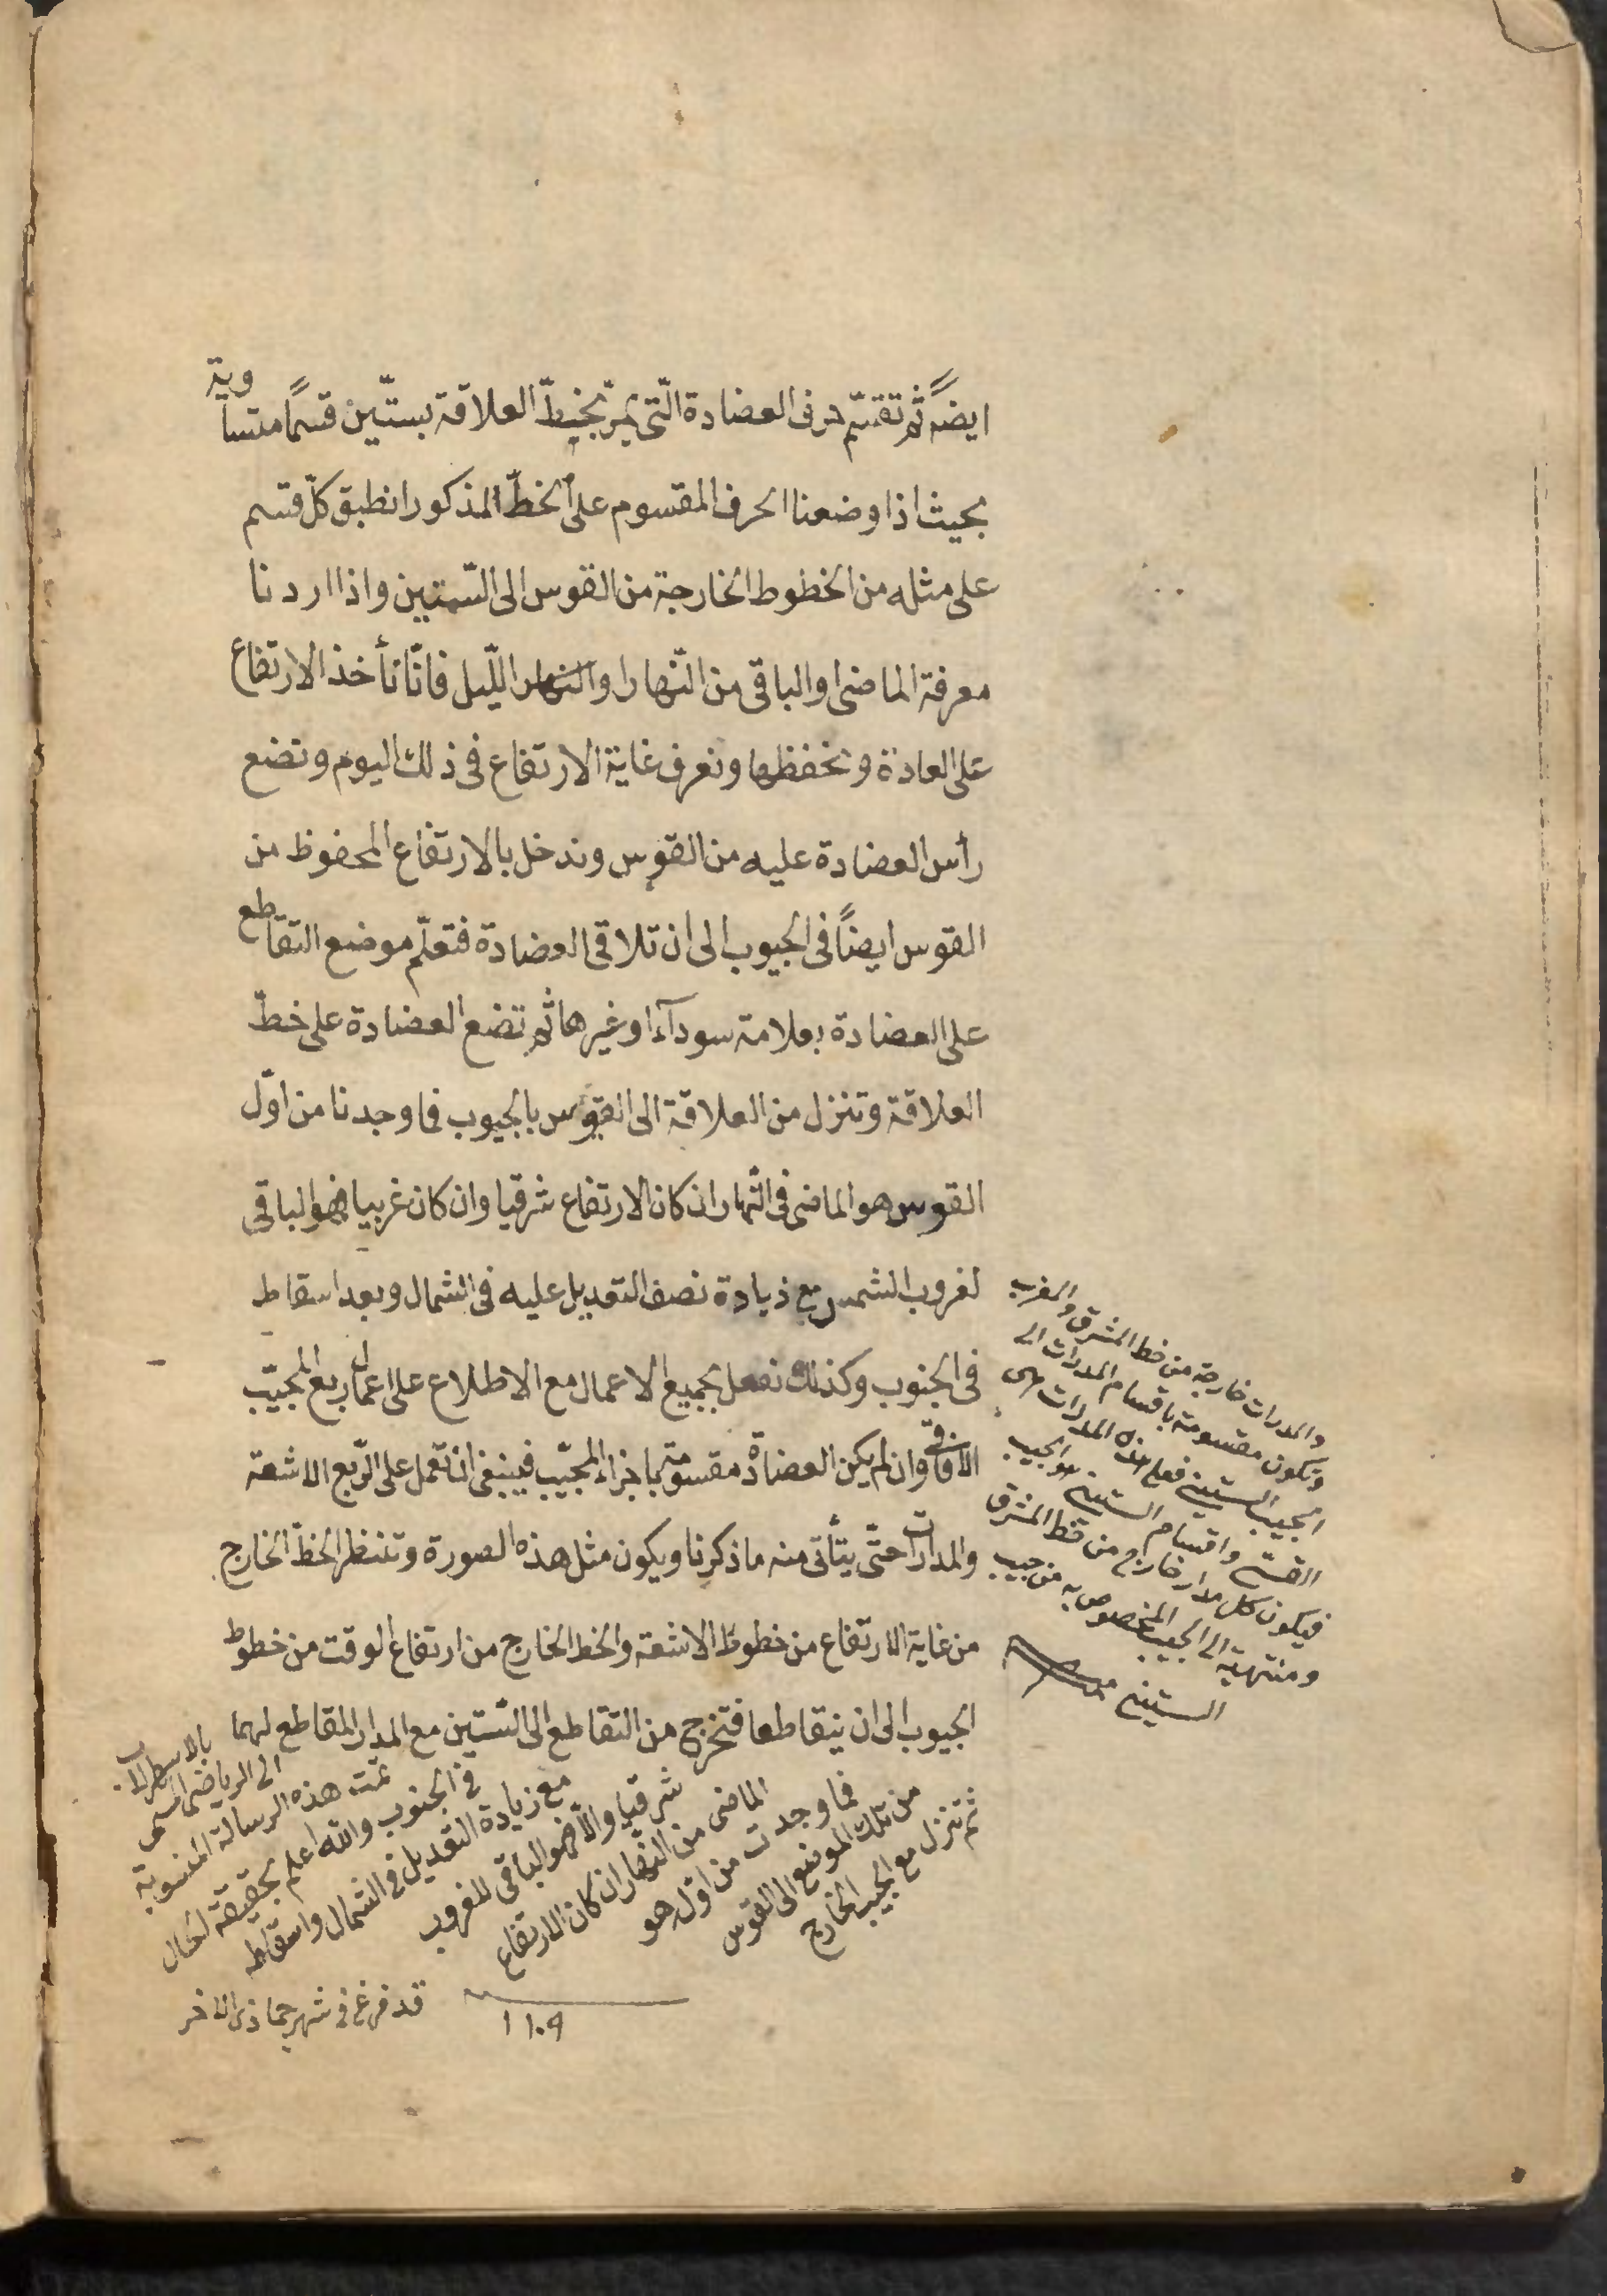 ايضً ثم تقسّم حرفى العضادة الّتى يمرّ بخيطّ العلاقة بستّين قسمًا متساوية
بحيث اذا وضعنا الحرف المقسوم على الخطّ المذكور انطبق كلّ قسم
على مثله من الخطوط الخارجة من القوس الى السّتين واذا اردنا
معرفة الماضى والباقى من النّهار او الليّل فانّا نأخذ الارتفاع
على العادة ونحفظها ونعرف غاية الارتفاع فى ذلك اليوم ونضع
رأس العضادة عليه من القوس وندخل بالارتفاع المحفوظ من
القوس ايضًا فى الجيوب الى ان تلاقى العضادة فتعلّم موضع التقاطع
على العضادة بعلامة سودآء او غيرها ثم تضع العضادة على خطّ
العلاقة وتنزل من العلاقة الى القوس بالجيوب فما وجدنا من اوّل
القوس هو الماضى فى النّهار ان كان الارتفاع شرقيا وان كان غربيا فهو الباقى
لغروب الشمس مع زيادة نصف التعديل عليه فى الشمال وبعد اسقاط
فى الجنوب وكذلك نفعل بجميع الاعمال مع الاطلاع على اعمال ربع المجيّب
الآفاقى وان لم يكن العضادة مقسومة باجزاء المجيّب فينبغى ان تعمل على الرّبع الاشعة
والمدارات حتّى يتأتى منه ما ذكرنا ويكون مثل هذه الصورة وتنظر الخطّ الخارج
من غاية الارتفاع من خطوط الاشعة والخط الخارج من ارتفاع الوقت من خطوط
الجيوب الى ان يتقاطعا فتخرج من التقاطع الى السّتين مع المدار المقاطع لهما
ثم تنزل مع الجيب الخارج
من تلك الموضع الى القوس
فما وجدت من اوّله هو
الماضى من النهار ان كان الارتفاع
شرقيا والّا فهو الباقى للغروب
مع زيادة التعديل فى الشمال واسقاطه
فى الجنوب والله اعلم بحقيقة الحال
تمت هذه الرسالة المنسوبة
الى الرياضى المسمى
بالاسطرلاب
قد فرغ فى شهر جماذى الاخر
١١٠٩
والمدرات خارجة من خط المشرق والمغرب
وتكون مقسومة باقسام المدرات الى
الجيب الستين فعلم هذه المدرات هى
القسىّ واقسام الستين هو الجيب
فيكون كل مدار خارج من خط المشرق
ومنتهية الى الجيب المخصوص به من جيب
الستين